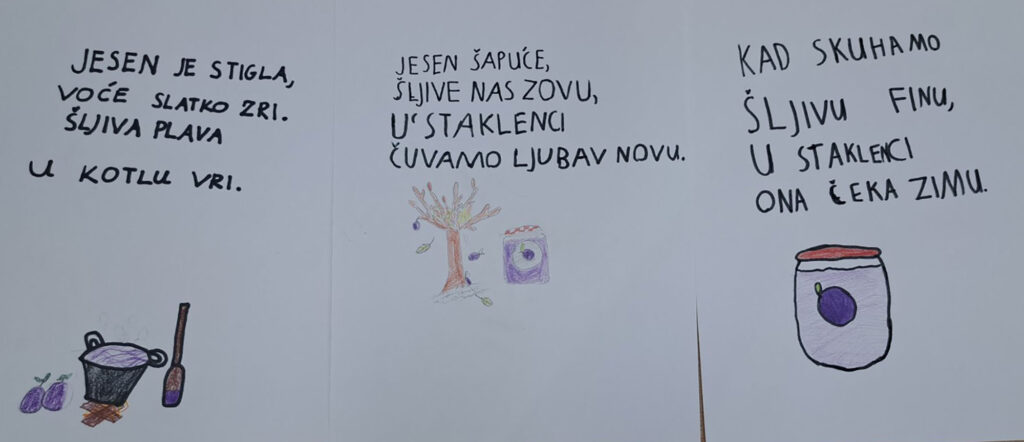 JESEN JE STIGLA,
VOĆE SLATKO ZRI.
ŠLJIVA PLAVA
U KOTLU VRI.
JESEN ŠAPUĆE,
ŠLJIVE NAS ZOVU,
U STAKLENCI
ČUVAMO LJUBAV NOVU.
KAD SKUHAMO
ŠLJIVU FINU,
U STAKLENCI
ONA ČEKA ZIMU.